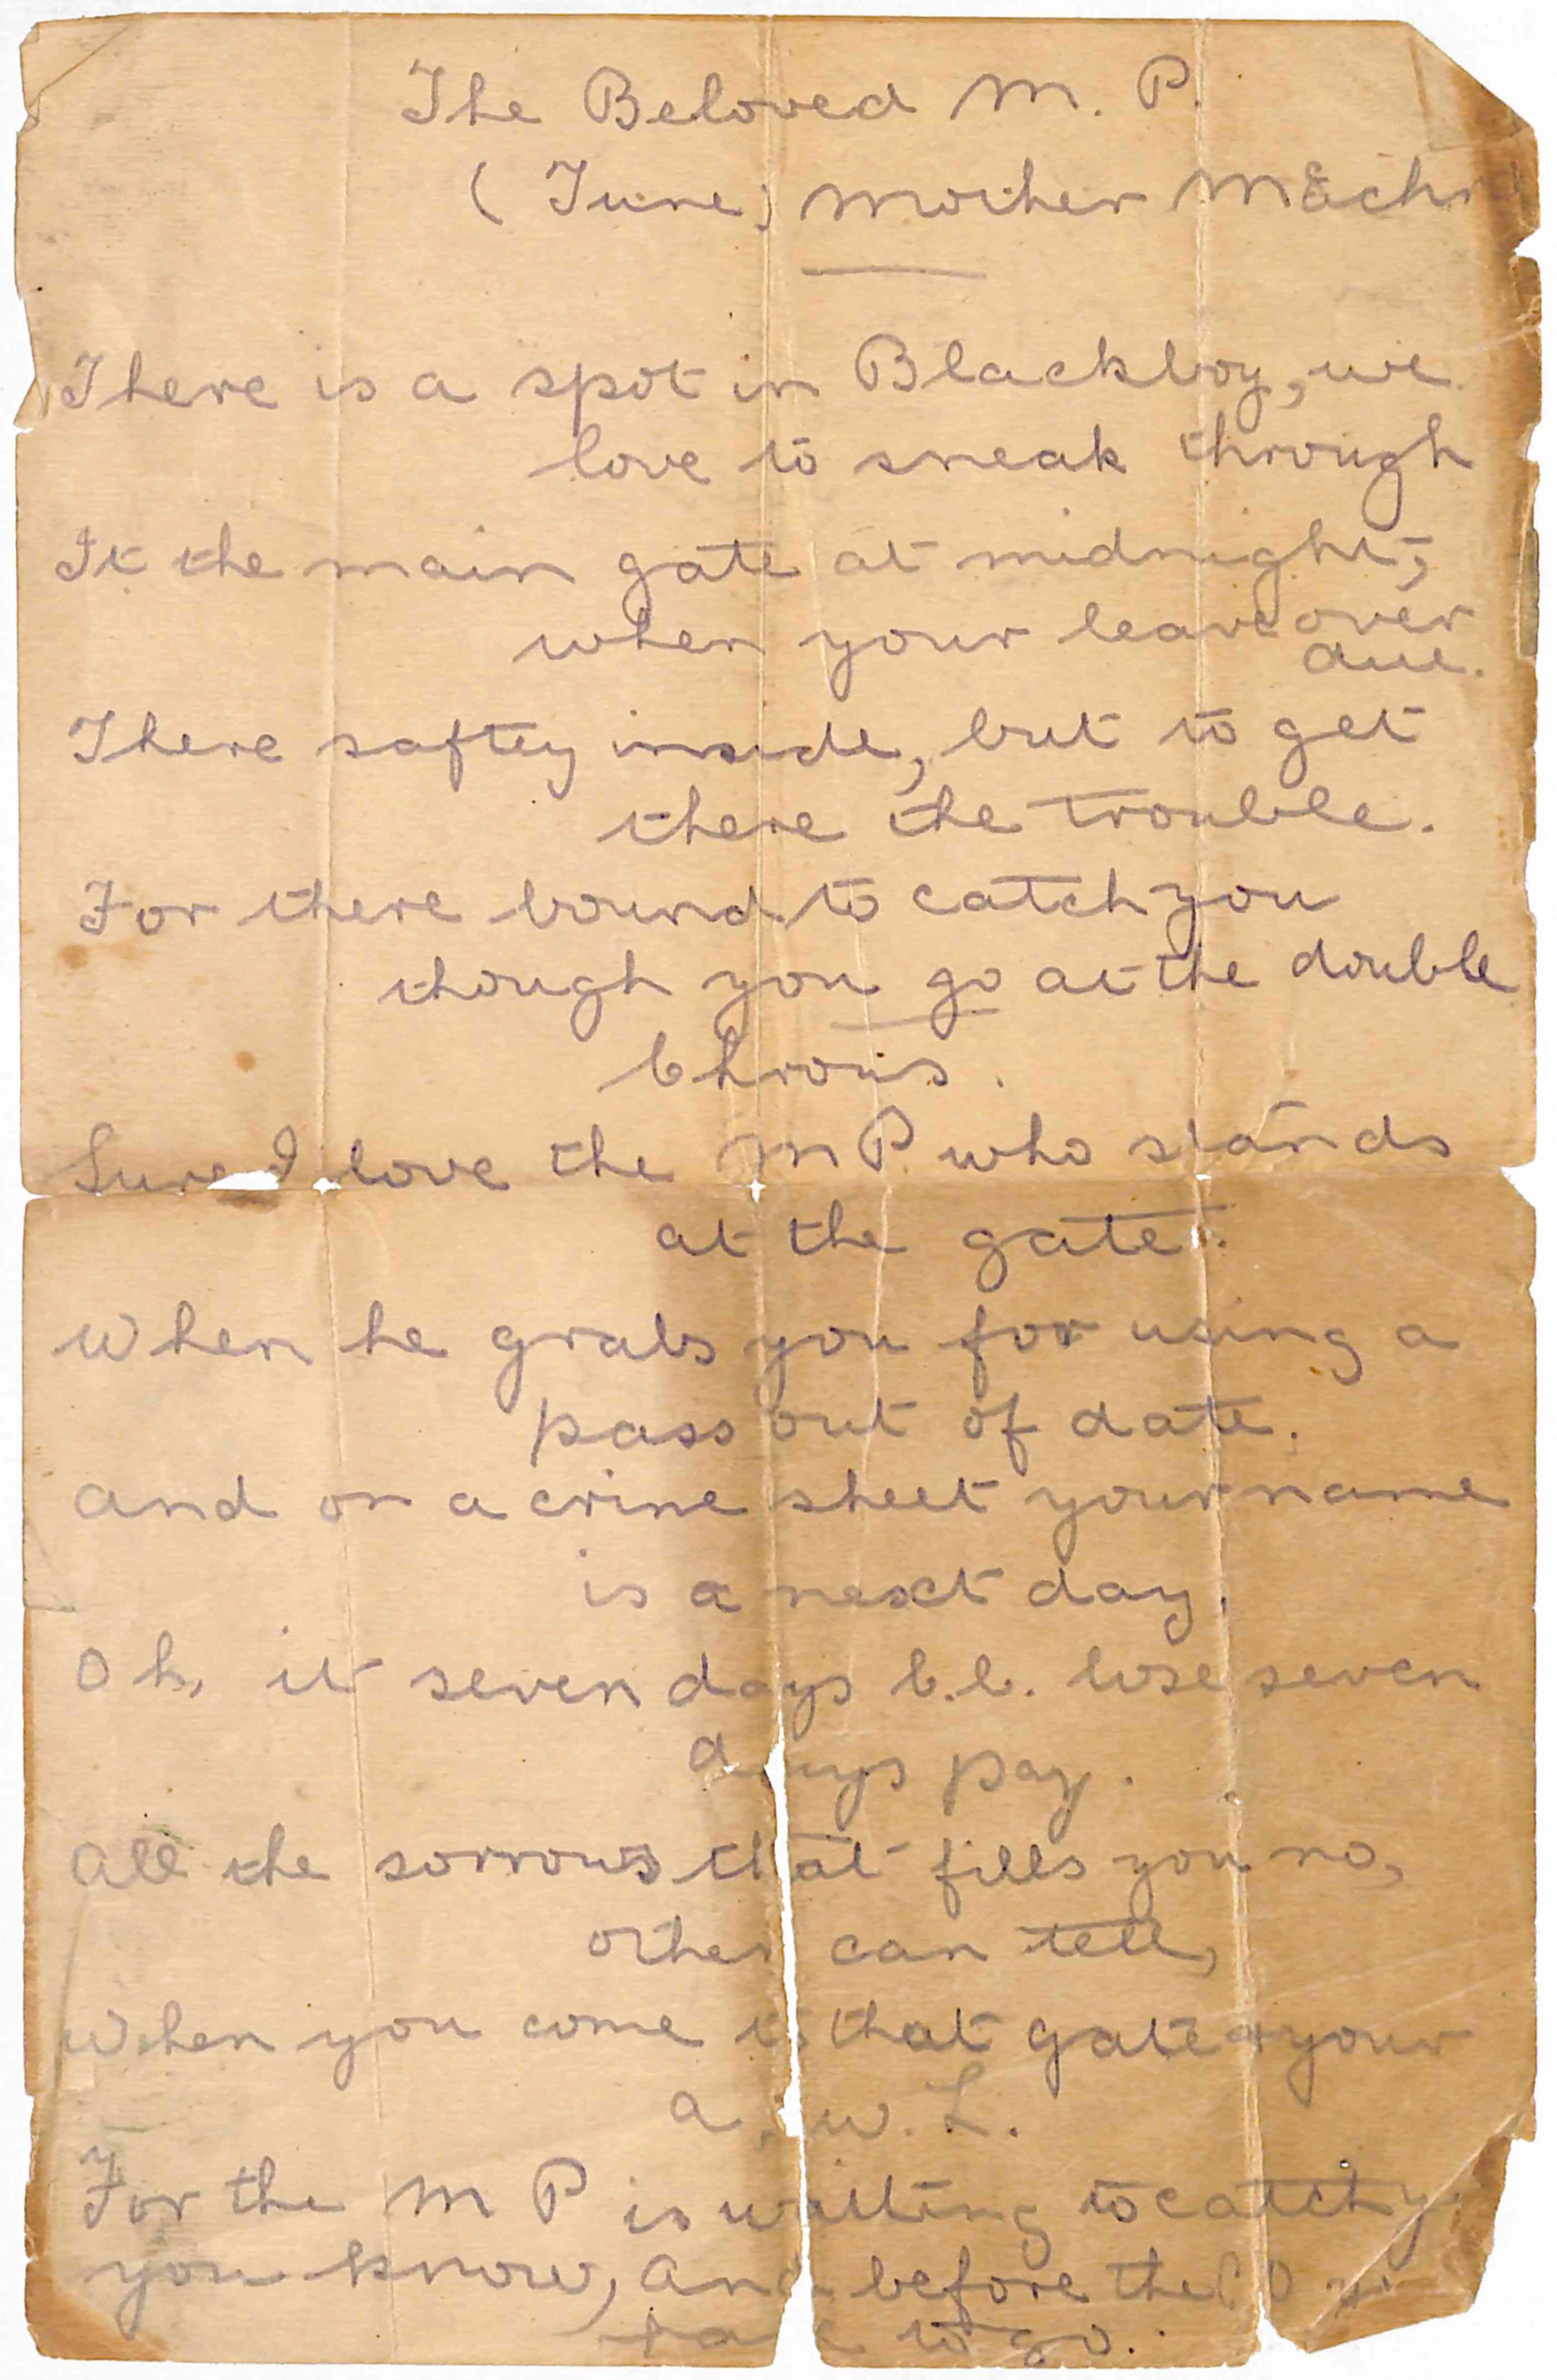 The Beloved M. P.
(Tune) Mother Mach
There is a spot in Blackboy, we
love to sneak through
It the main gate at midnight,
when your leave over
due.
There saftey inside, but to get
there the trouble.
For there bound to catch you
though you go at the double
Chrous.
Sure I love the M P. who stands
at the gate.
When he grabs you for using a
pass out of date.
And on a crine sheet your name
is a next day.
Oh, it seven days C.C. lose seven
days pay.
All the sorrows that fills you no,
other can tell,
When you come to that gate &your
A. W. L.
For the M P is waiting to catch
you know, And before the CO
to go.